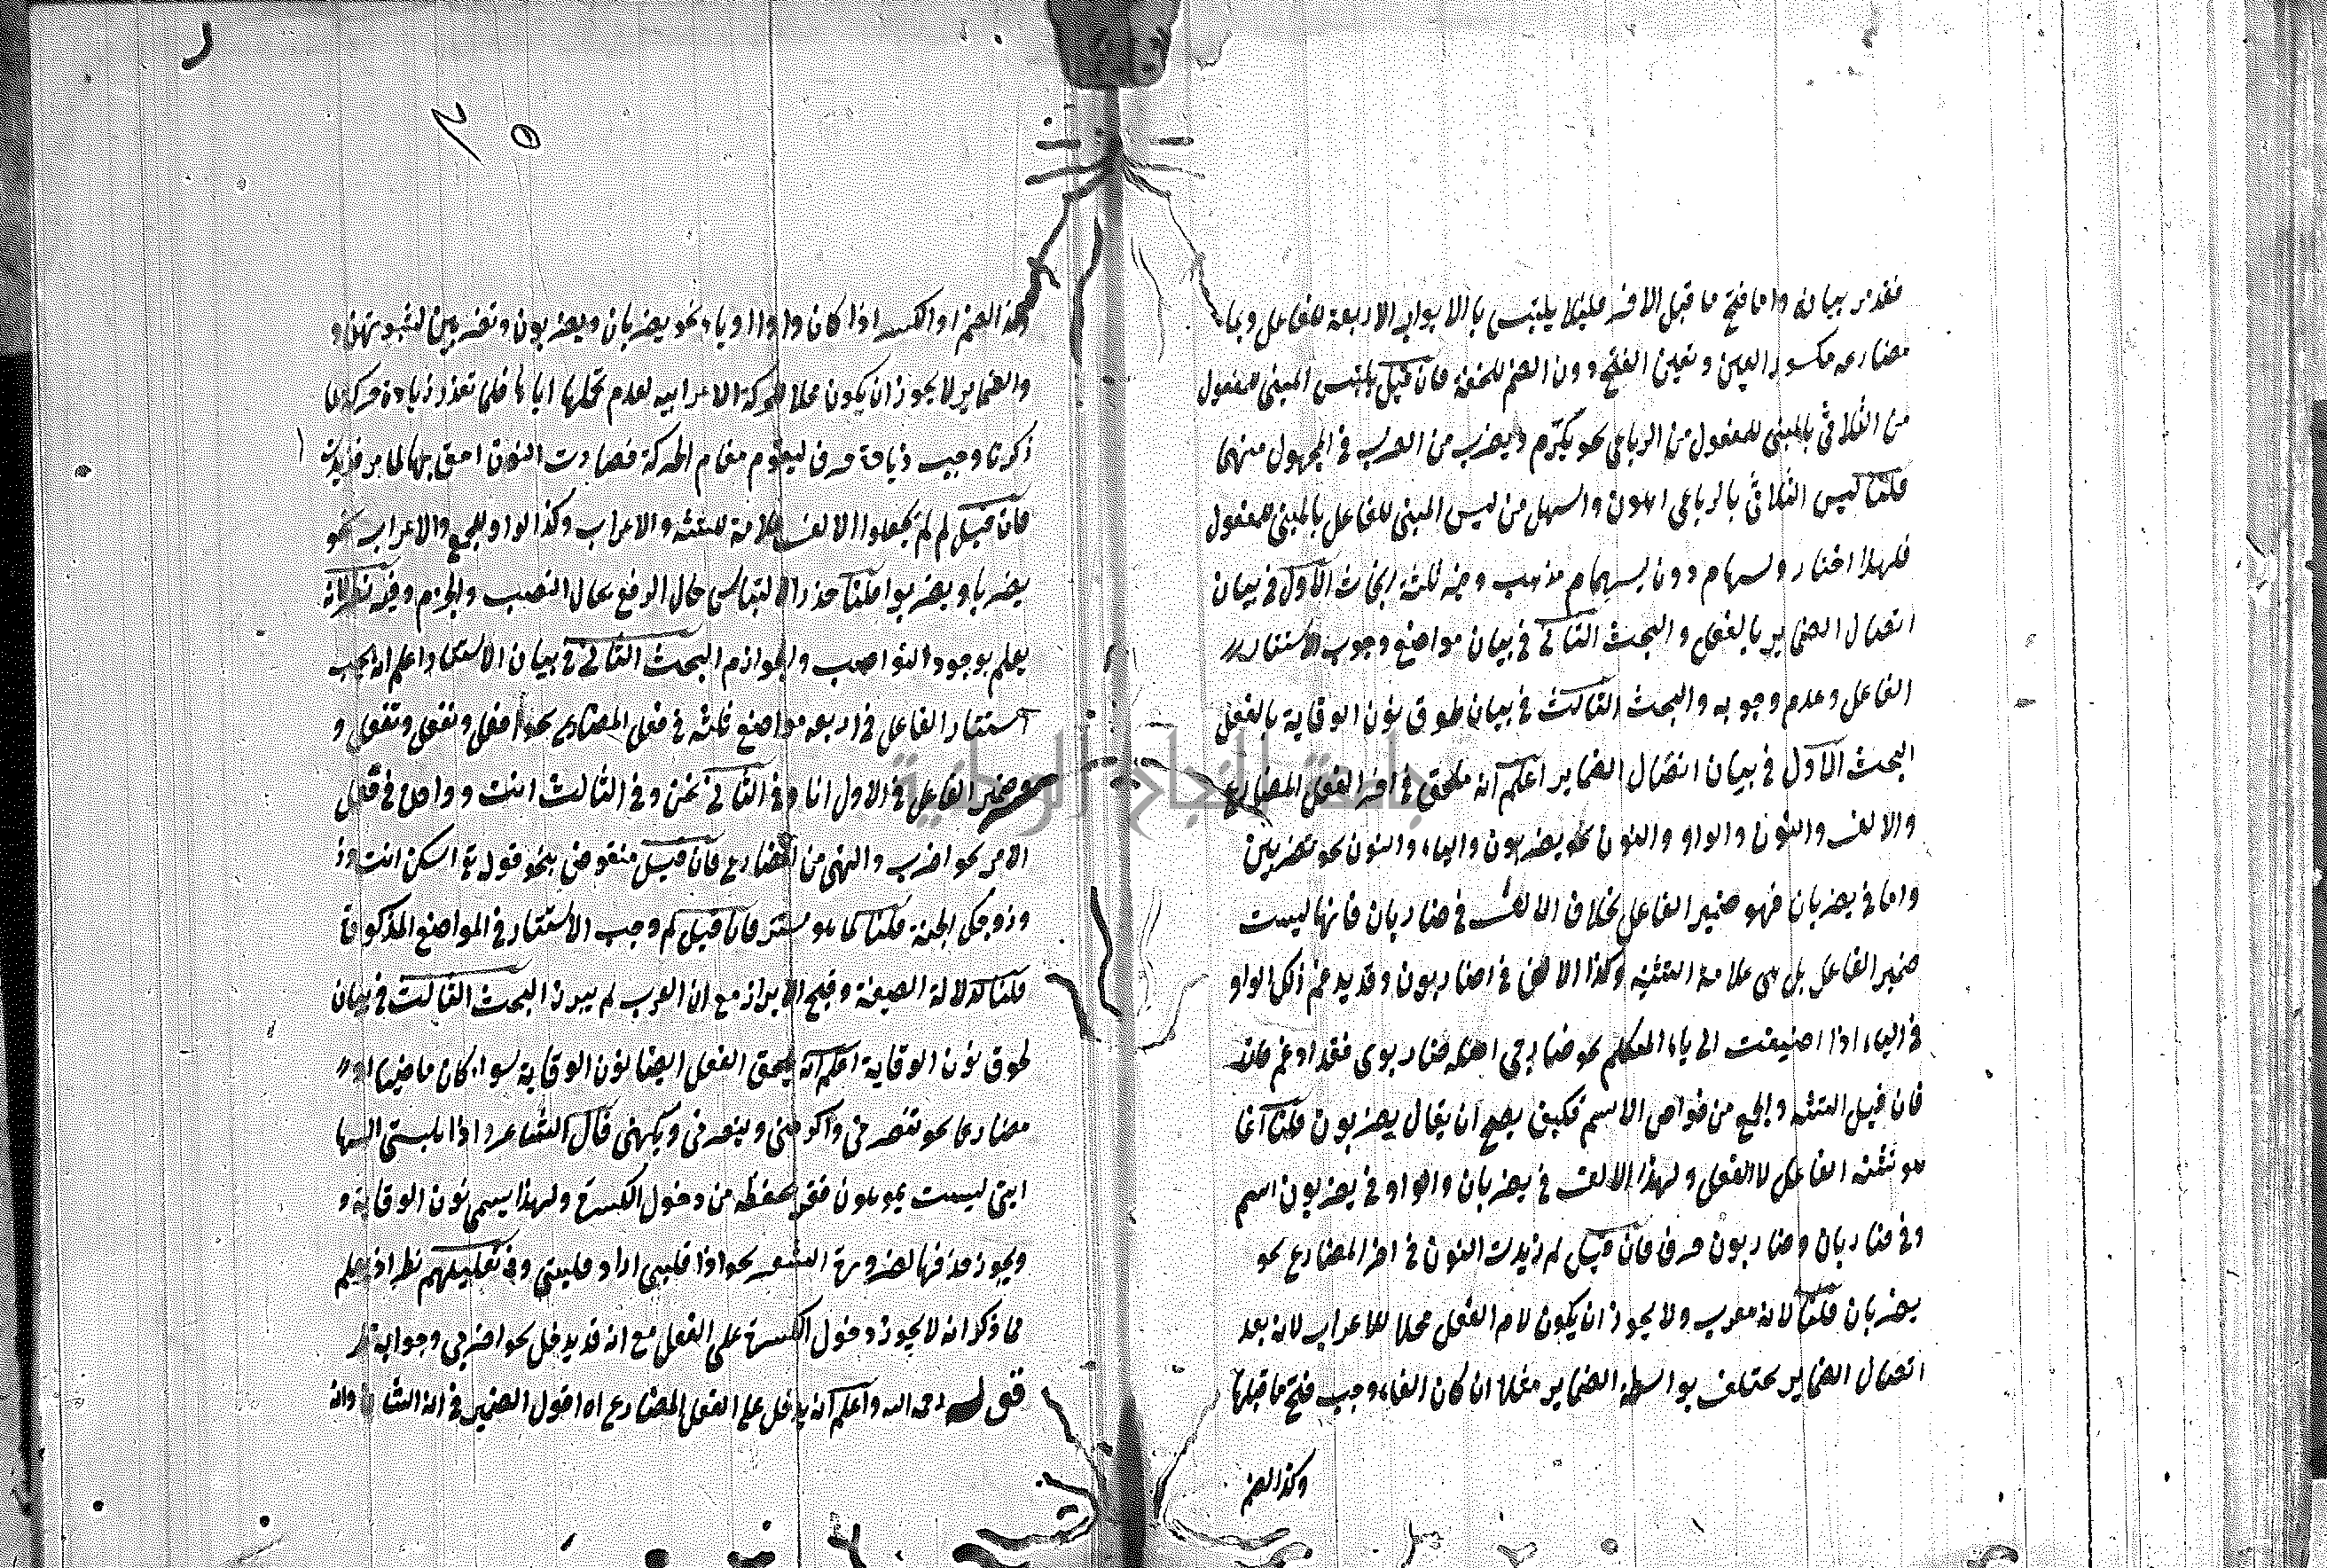 فقد مر بيانه واما فتح ما قبل الاخر فلئلا يلتبس بالابواب الاربعة للفاعل وبما
مضارعه مكسور العين وتعين الفتح دون الضم للخفة فان قيل يلتبس المبنى للمفعول
من الثلاثى بالمبنى للمفعول من الرباعى نحو يكرم ويضرب من الضرب فى المجهول منهما
قلنا ليس الثلاثى بالرباعى اهون واسهل من ليس المبنى للفاعل بالمبنى للمفعول
فلهذا اختار وفيه ثلثة ابحاث الاول فى بيان
اتصال الضماير بالفعل والبحث الثانى فى بيان مواضع وجوب الاستتار
الفاعل وعدم وجوبه والبحث الثالث فى بيان لحوق نون الوقاية بالفعل
البحث الاول فى بيان اتصال الضماير اعلم انه ملحق فى اخر الفعل المضارع
والالف والنون والواو والنون نحو يضربون والياء والنون نحو تضربين
واما فى يضربان فهو ضمير الفاعل بخلاف الالف فى ضاربان فانها ليست
ضمير الفاعل بل هى علامة التثنيه وكذا الالف فى ضاربون وقد يدغم ذلك الواو
فى الياء اذا اضيفت الى ياء المتكلم نحو ضاربى اصله ضاربوى فقد ادغم
فان قيل التثنيه والجمع من خواص الاسم فكيف يصح ان يقال يضربون قلنا انما
هو تثنيه الفاعل لا الفعل ولهذا الالف فى يضربان والواو فى يضربون اسم
وفى ضاربان وضاربون حرف فان قيل لم زيدت النون فى اخر المضارع نحو
يضربان قلنا لانه معرب ولا يجوز ان يكون لام الفعل محلا للاعراب لانه بعد
اتصال الضماير يختلف بواسطة الضماير مثلا ان كان الفاء وجب فتح ما قبلها
وكذا الضم
وكذا الضم او الكسر اذا كان واوا او ياء نحو يضربان ويضربون وتضربين لثبوتهن و
والضماير لا يجوز ان يكون محلا للحركة الاعرابيه لعدم تحملها اياها فلما تعذر زيادة حركة لما
ذكرنا وجب زيادة حرف ليقوم مقام الحركة فصارت النون احق بها لما مر فزيدت
فان قيل لم لم يجعلوا الالف علامة للتثنيه والاعراب وكذا الواو للجمع والاعراب نحو
يضربا ويضربوا قلنا حذر الالتباس حال الرفع بحال النصب والجزم وفيه نظر لانه
يعلم بوجود النواصب والجوازم البحث الثانى فى بيان الاستتار واعلم انه يجب
استتار الفاعل فى اربعه مواضع ثلثه فى فعل المضارع نحو افعل ونفعل وتفعل و
وضمير الفاعل فى الاول انا وفى الثانى نحن وفى الثالث انت وواحد فى فعل
الامر نحو اضرب والنهى من المضارع فان قيل منقوض بنحو قوله تع اسكن انت وز
وزوجك الجنة قلنا هو مستتر فان قيل لم وجب الاستتار فى المواضع المذكورة
قلنا لدلالة الصيغة وقبح الابراز مع ان العرب لم يبرز البحث الثالث فى بيان
لحوق نون الوقاية اعلم انه يلحق الفعل ايضا نون الوقاية سواء كان ماضيا او
مضارعا نحو تنصرنى واكرمنى وينصرنى ويكهنى قال الشاعر واذا
ليست فقد يحفظه من دخول الكسرة ولهذا يسمى نون الوقاية و
ويجوز حذفها لضرورة الشعر نحو اذا فليى اراد فليتى وفى تعليلهم نظر اذ يعلم
مما ذكر انه لا يجوز دخول الكسرة على الفعل مع انه قد يدخل نحو اضربى وجوابه
قوله رحمه الله واعلم انه يدخل على الفعل المضارع اه اقول الضمير فى انه الشان وانه